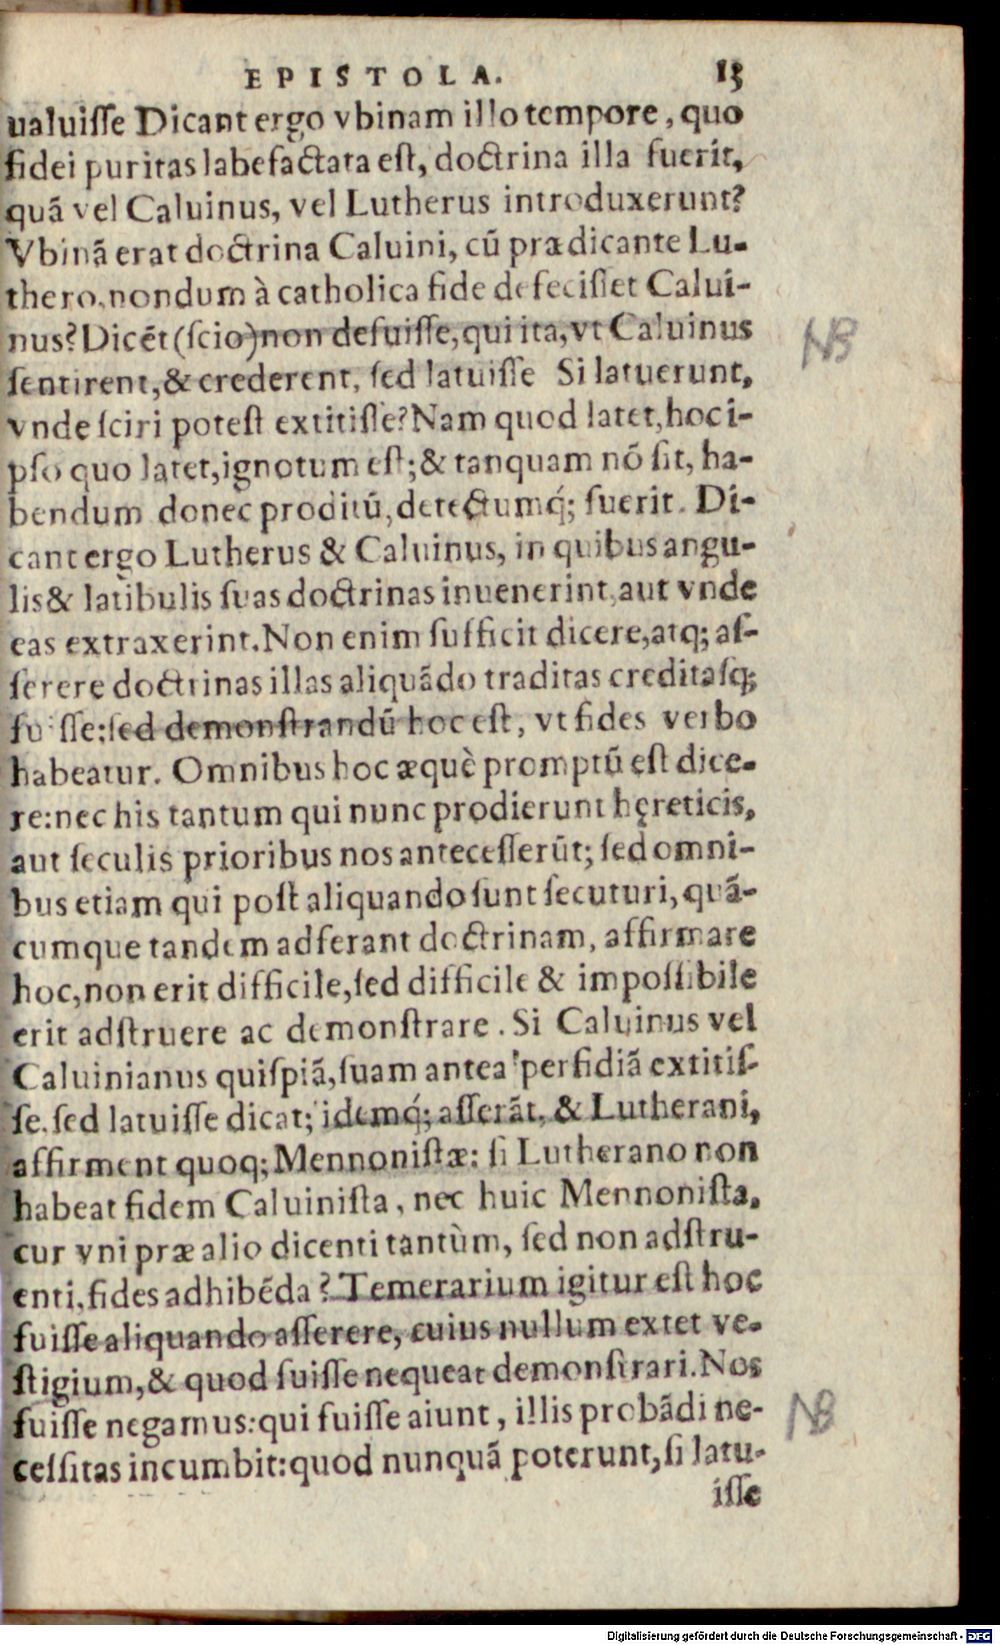 EPISTOLA. 15
ualuiſſe Dicant ergo vbinam illo tempore, quo
fidei puritas labefactata eſt, doctrina illa fuerit,
quã vel Caluinus, vel Lutherus introduxerunt?
Vbinã erat doctrina Caluini, cũ prædicante Lu-
thero, nondum à catholica fide defeciſſet Calui-
nus? Dicẽt (ſcio) non defuiſſe, qui ita, vt Caluinus
ſentirent, & crederent, ſed latuiſſe Si latuerunt,
vnde ſciri poteſt extitiſſe? Nam quod latet, hoc i-
pſo quo latet, ignotum eſt; & tanquam nõ ſit, ha-
bendum donec proditũ, detectumq́; fuerit. Di-
cant ergo Lutherus & Caluinus, in quibus angu-
lis & latibulis ſuas doctrinas inuenerint, aut vnde
eas extraxerint. Non enim ſufficit dicere, atq; aſ-
ſerere doctrinas illas aliquãdo traditas creditaſq;
fuiſſe: ſed demonſtrandũ hoc eſt, vt fides verbo
habeatur. Omnibus hoc æquè promptũ eſt dice-
re: nec his tantum qui nunc prodierunt hęreticis,
aut ſeculis prioribus nos anteceſſerũt; ſed omni-
bus etiam qui poſt aliquando ſunt ſecuturi, quã-
cumque tandem adferant doctrinam, affirmare
hoc, non erit difficile, ſed difficile & impoſſibile
erit adſtruere ac demonſtrare. Si Caluinus vel
Caluinianus quiſpiã, ſuam antea perfidiã extitiſ-
ſe, ſed latuiſſe dicat; idemq́; aſſerãt, & Lutherani,
affirment quoq; Mennoniſtæ: ſi Lutherano non
habeat fidem Caluiniſta, nec huic Mennoniſta,
cur vni præ alio dicenti tantùm, ſed non adſtru-
enti, fides adhibẽda? Temerarium igitur eſt hoc
fuiſſe aliquando aſſerere, cuius nullum extet ve-
ſtigium, & quod fuiſſe nequeat demonſtrari. Nos
fuiſſe negamus: qui fuiſſe aiunt, illis probãdi ne-
ceſſitas incumbit: quod nunquã poterunt, ſi latu-
iſſe
NB
NB
Digitalisierung gefördert durch die Deutsche Forschungsgemeinschaft - DFG